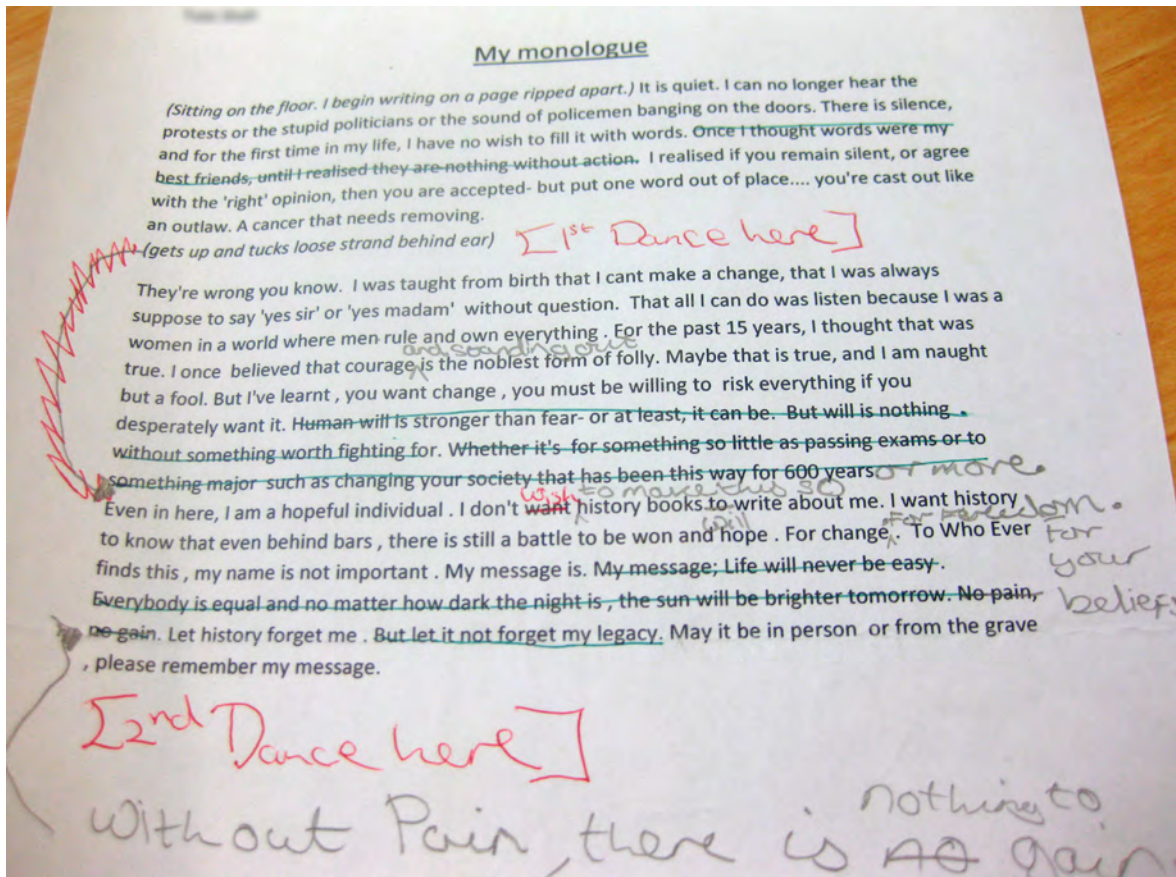 My monologue
(Sitting on the floor. I begin writing on a page ripped apart.) It is quiet. I can no longer hear the
protests or the stupid politicians or the sound of policemen banging on the doors. There is silence,
and for the first time in my life, I have no wish to fill it with words. Once I thought words were my
best friends, until I realised they are nothing without action. I realised if you remain silent, or agree
with the 'right' opinion, then you are accepted- but put one word out of place.... you're cast out like
an outlaw. A cancer that needs removing.
(gets up and tucks loose strand behind ear) [1st Dance here]
They're wrong you know. I was taught from birth that I cant make a change, that I was always
suppose to say 'yes sir' or 'yes madam' without question. That all I can do was listen because I was a
women in a world where men rule and own everything . For the past 15 years, I thought that was
and standing out
true. I once believed that courage is the noblest form of folly. Maybe that is true, and I am naught
but a fool. But I've learnt , you want change , you must be willing to risk everything if you
desperately want it. Human will is stronger than fear- or at least, it can be. But will is nothing
without something worth fighting for. Whether it's for something so little as passing exams or to
something major such as changing your society that has been this way for 600 years or more.
wish to make this so
Even in here, I am a hopeful individual . I don't want history books to write about me. I want history
will for freedom.
to know that even behind bars , there is still a battle to be won and hope . For change . To Who Ever for
finds this , my name is not important . My message is. My message; Life will never be easy . your
Everybody is equal and no matter how dark the night is , the sun will be brighter tomorrow. No pain, beliefs
no gain. Let history forget me . But let it not forget my legacy. May it be in person or from the grave
, please remember my message.
[2nd Dance here]
nothing to
Without Pain, there is no gain